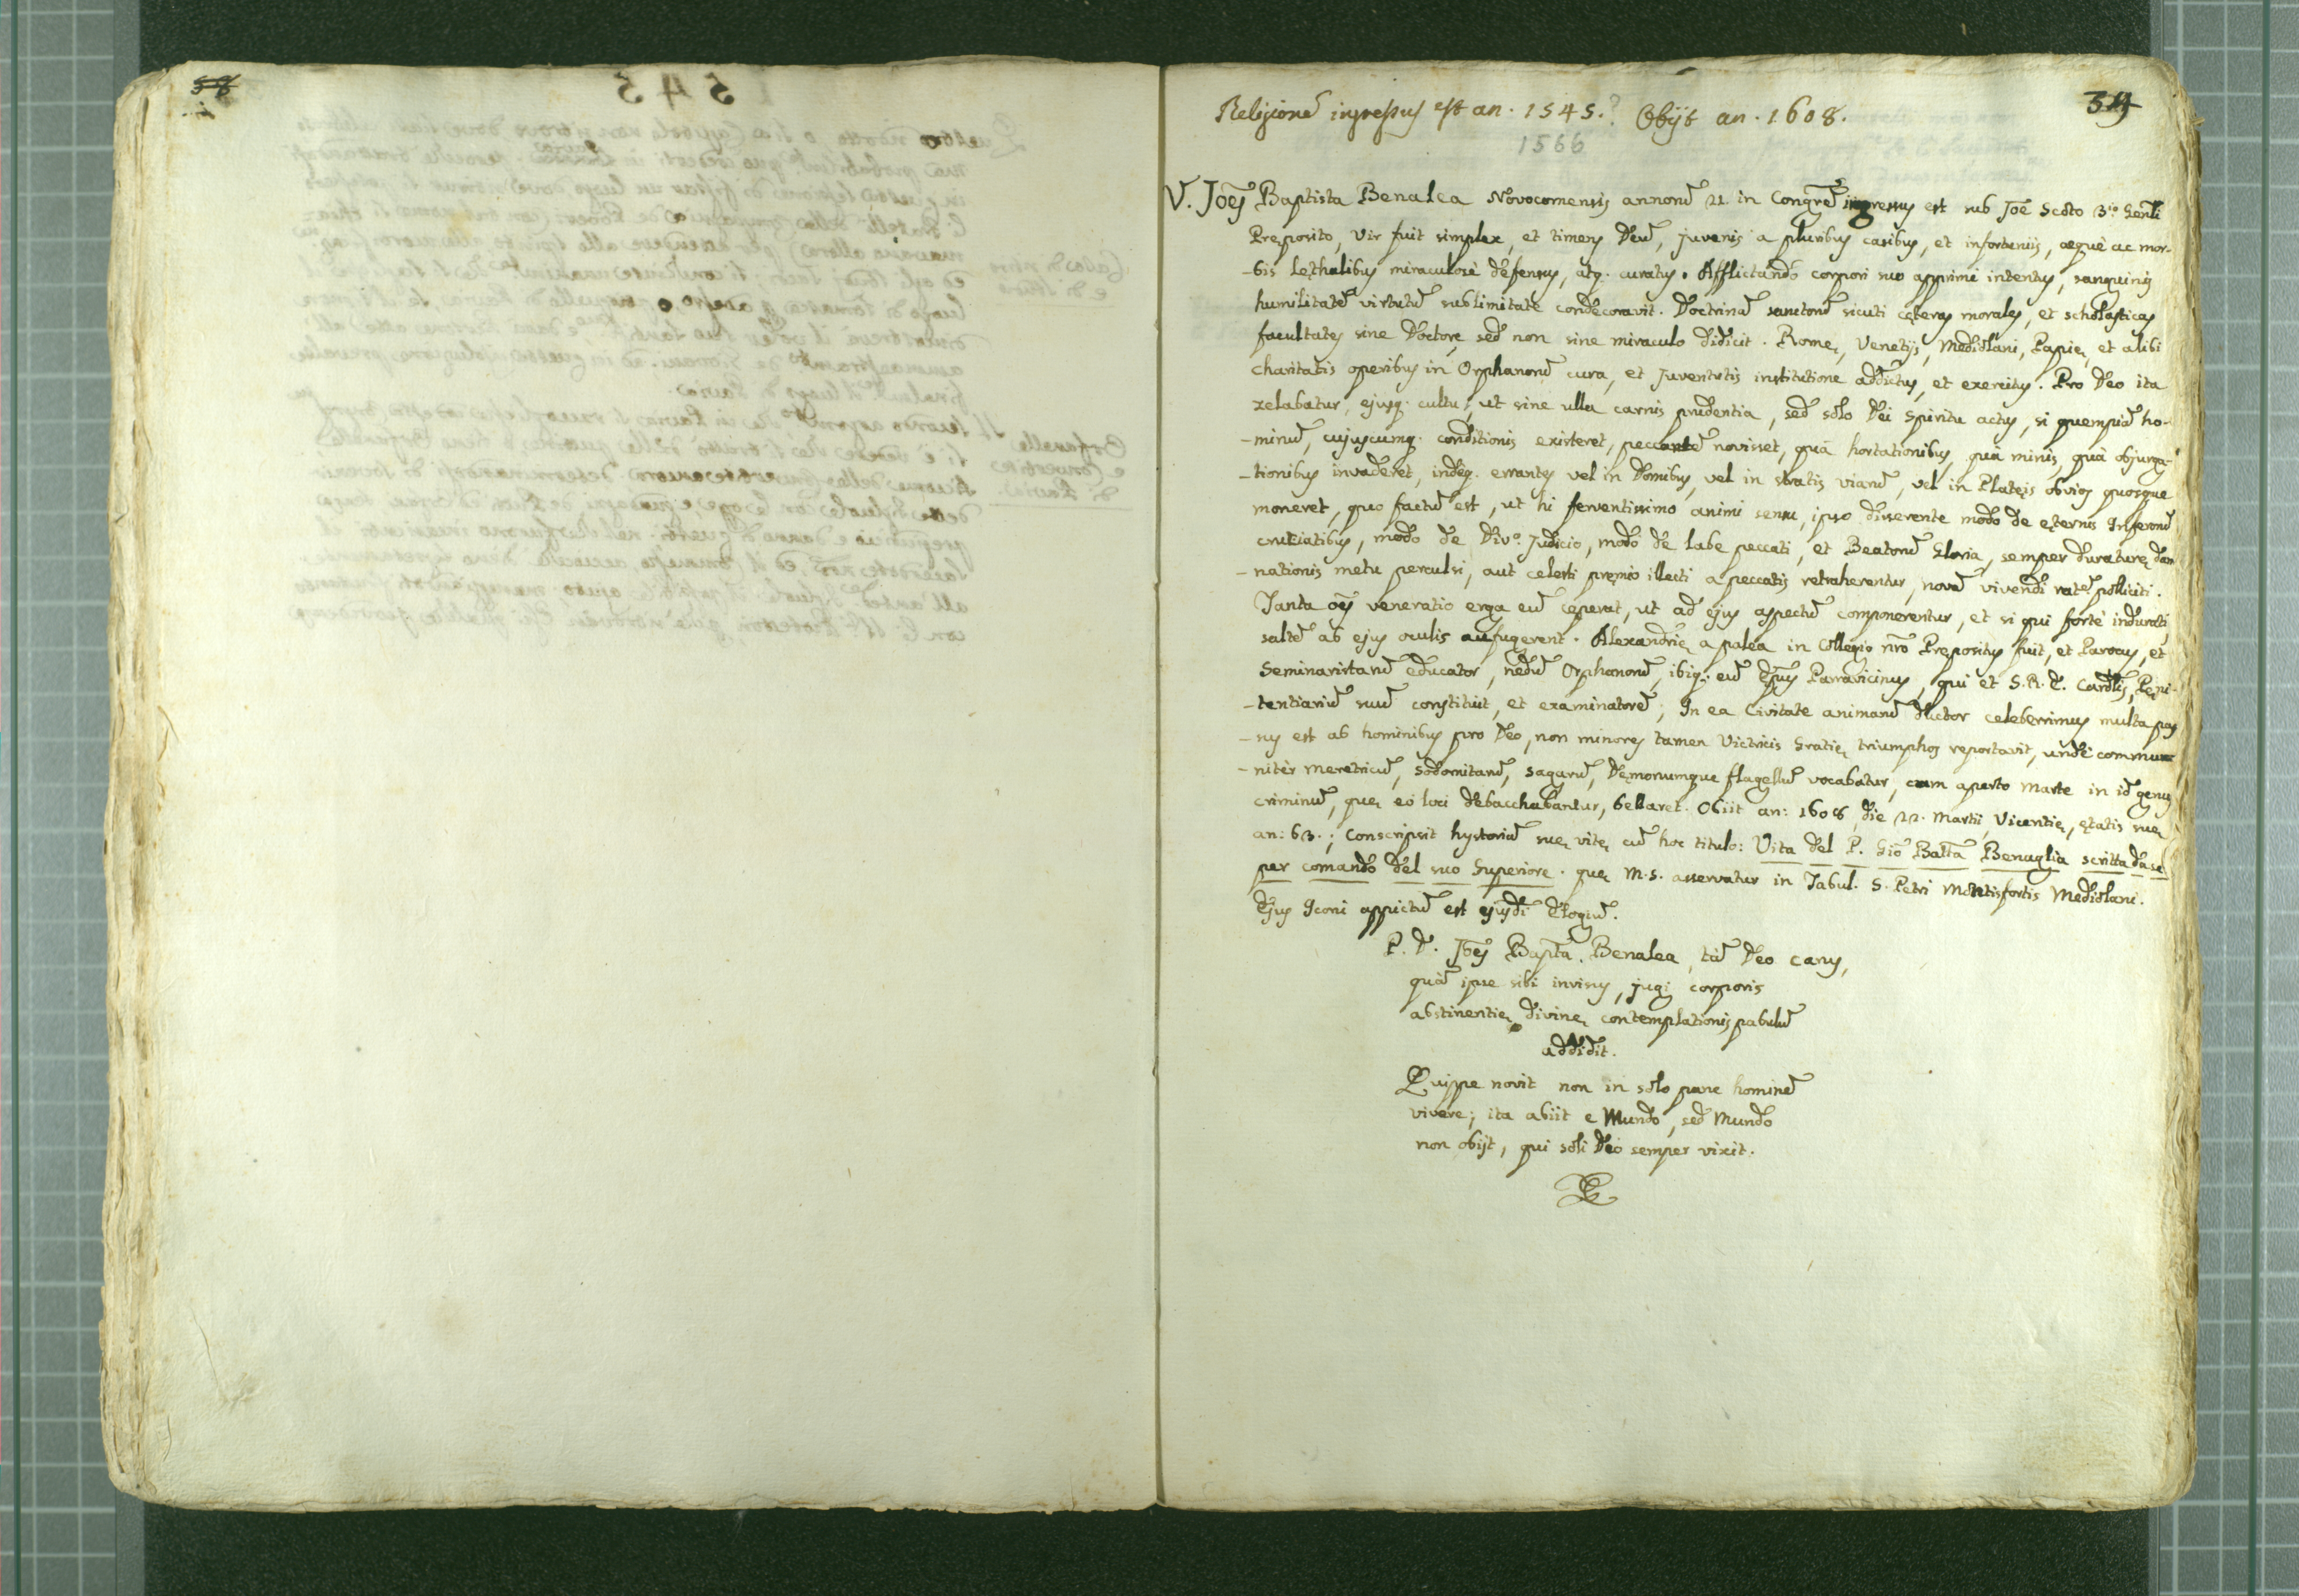 58
Religionē ingressus est an. 1545.? Obijt an. 1608.
1566
V. Joēs Baptista Benalea Novocomensis annorū 21. in Congrē ingressus est sub Joē Scoto 3.io Genli
Pręposito, Vir fuit simplex, et timens Deū, juvenis a pluribus casibus, et infortuniis, aequè ac mor-
-bis lęthalibus miraculosè defensus, atq. curatus. Afflictando corpori suo apprimè intentus, sanguinis
humilitatē virtutū sublimitate condecoravit. Doctrinā sanctorū sicuti cęteras morales, et scholasticas
facultates sine Doctore, sed non sine miraculo didicit. Romę, Venetijs, Mediolani, Papię, et alibi
charitatis operibus in Orphanorū cura, et Juventutis institutione addictus, et exercitus. Pro Deo ita
zelabatur, ejusq. cultu, ut sine ulla carnis prudentia, sed solo Dei Spiritu actus, si quempiā ho-
-minū, cujuscumq. conditionis existeret, peccantē novisset, quā hortationibus, quā minis, quā objurga-
-tionibus invaderet, indeq. errantes vel in Domibus, vel in stratis viarū, vel in Platęis obvios quosque
moneret, quo factū est, ut hi ferventissimo animi sensu, ipso disserente modo de ęternis Inferorū
cruciatibus, modo de Divo. Judicio, modo de labe peccati, et Beatorū Gloria, semper duraturę dam
-nationis metu perculsi, aut celesti pręmio illecti a peccatis retraherentur, novā vivendi ratē polliciti.
Tanta oēs veneratio erga eū ceperat, ut ad ejus aspectū componerentur, et si qui fortè indurati,
saltē ab ejus oculis aufugerent. Alexandrię a palea in Collegio nrō Prępositus fuit, et Parocus, et
Seminaristarū educator, nedū Orphanorū, ibiq. eū Epūs Parravicinus, qui et S.R.E. Cardlis, Pęni-
-tentiariū suū constituit, et examinatorē; In ea Civitate animarū ductor celeberrimus multa pas
-sus est ab hominibus pro Deo, non minores tamen Victricis Gratię triumphos reportavit, unde commu
-nitèr meretricū, sodomitarū, sagarū, Dęmonumque flagellū vocabatur, cum aperto Marte in id genus
criminū, quę eò loci debacchabantur, bellaret. Obiit an: 1608, die 22. Martii, Vicentię, ętatis suę
an: 63.; Conscripsit hystoriā suę vitę cū hoc titulo: Vita del P. Gio Batta Benaglia scritta da se
per comando del suo Superiore. quę M.S. asservatur in Tabul. S. Petri Montisfortis Mediolani.
Ejus Iconi appictū est ejusdi Elogiū.
P. D. Joēs Bapta. Benalea, tā Deo carus,
quā ipse sibi invisus, jugi corporis
abstinentię divinę contemplationis pabulū
addidit.
Quippe novit non in solo pane hominē
vivere; ita abiit e Mundo, sed Mundo
non obijt, qui soli Deo semper vixit.